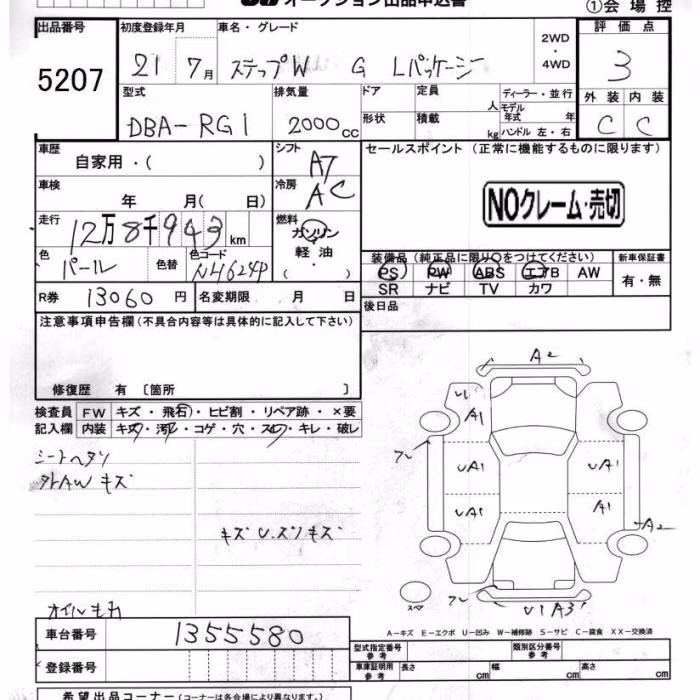 オークション出品申込書
①会場控
出品番号 初度登録年月 車名・グレード 2WD・4WD 評価点
5207 21 7月 ステップW G Lパッケージ 3
型式 排気量 ドア 定員 人 ディーラー・並行 外装 内装
DBA-RG1 2000cc 形状 積載 kg モデル年式 年 ハンドル 左・右 C C
車歴 自家用・( ) シフト A7 セールスポイント (正常に機能するものに限ります)
車検 年 月( 日) 冷房 AC
NOクレーム・売切
走行 12万8千943km 燃料 ガソリン 軽油 ( ・ )
色 パール 色替 色コード NH624P
装備品 (純正品に限り○をつけてください) 新車保証書
PS PW ABS エアB AW 有・無
SR ナビ TV カワ
R券 13060円 名変期限 月 日 後日品
注意事項申告欄 (不具合内容等は具体的に記入して下さい)
修復歴 有 〔箇所 〕
検査員 FW キズ・飛石・ヒビ割・リペア跡・×要
記入欄 内装 キズ・汚れ・コゲ・穴・スレ・キレ・破レ
シートヘタリ
外AWキズ
キズU.スリキズ
オイルモれ
A2
U1
A1
フレ
UA1 UA1
UA1 A1
A2
フレ
U1 A3
スペア
A-キズ E-エクボ U-凹み W-補修跡 S-サビ C-腐食 XX-交換済
車台番号 1355580
型式指定番号 参考 類別区分番号 参考
登録番号
車庫証明用 参考 長さ cm 幅 cm 高さ cm
希望出品コーナー (コーナーは各会場により異なります。)